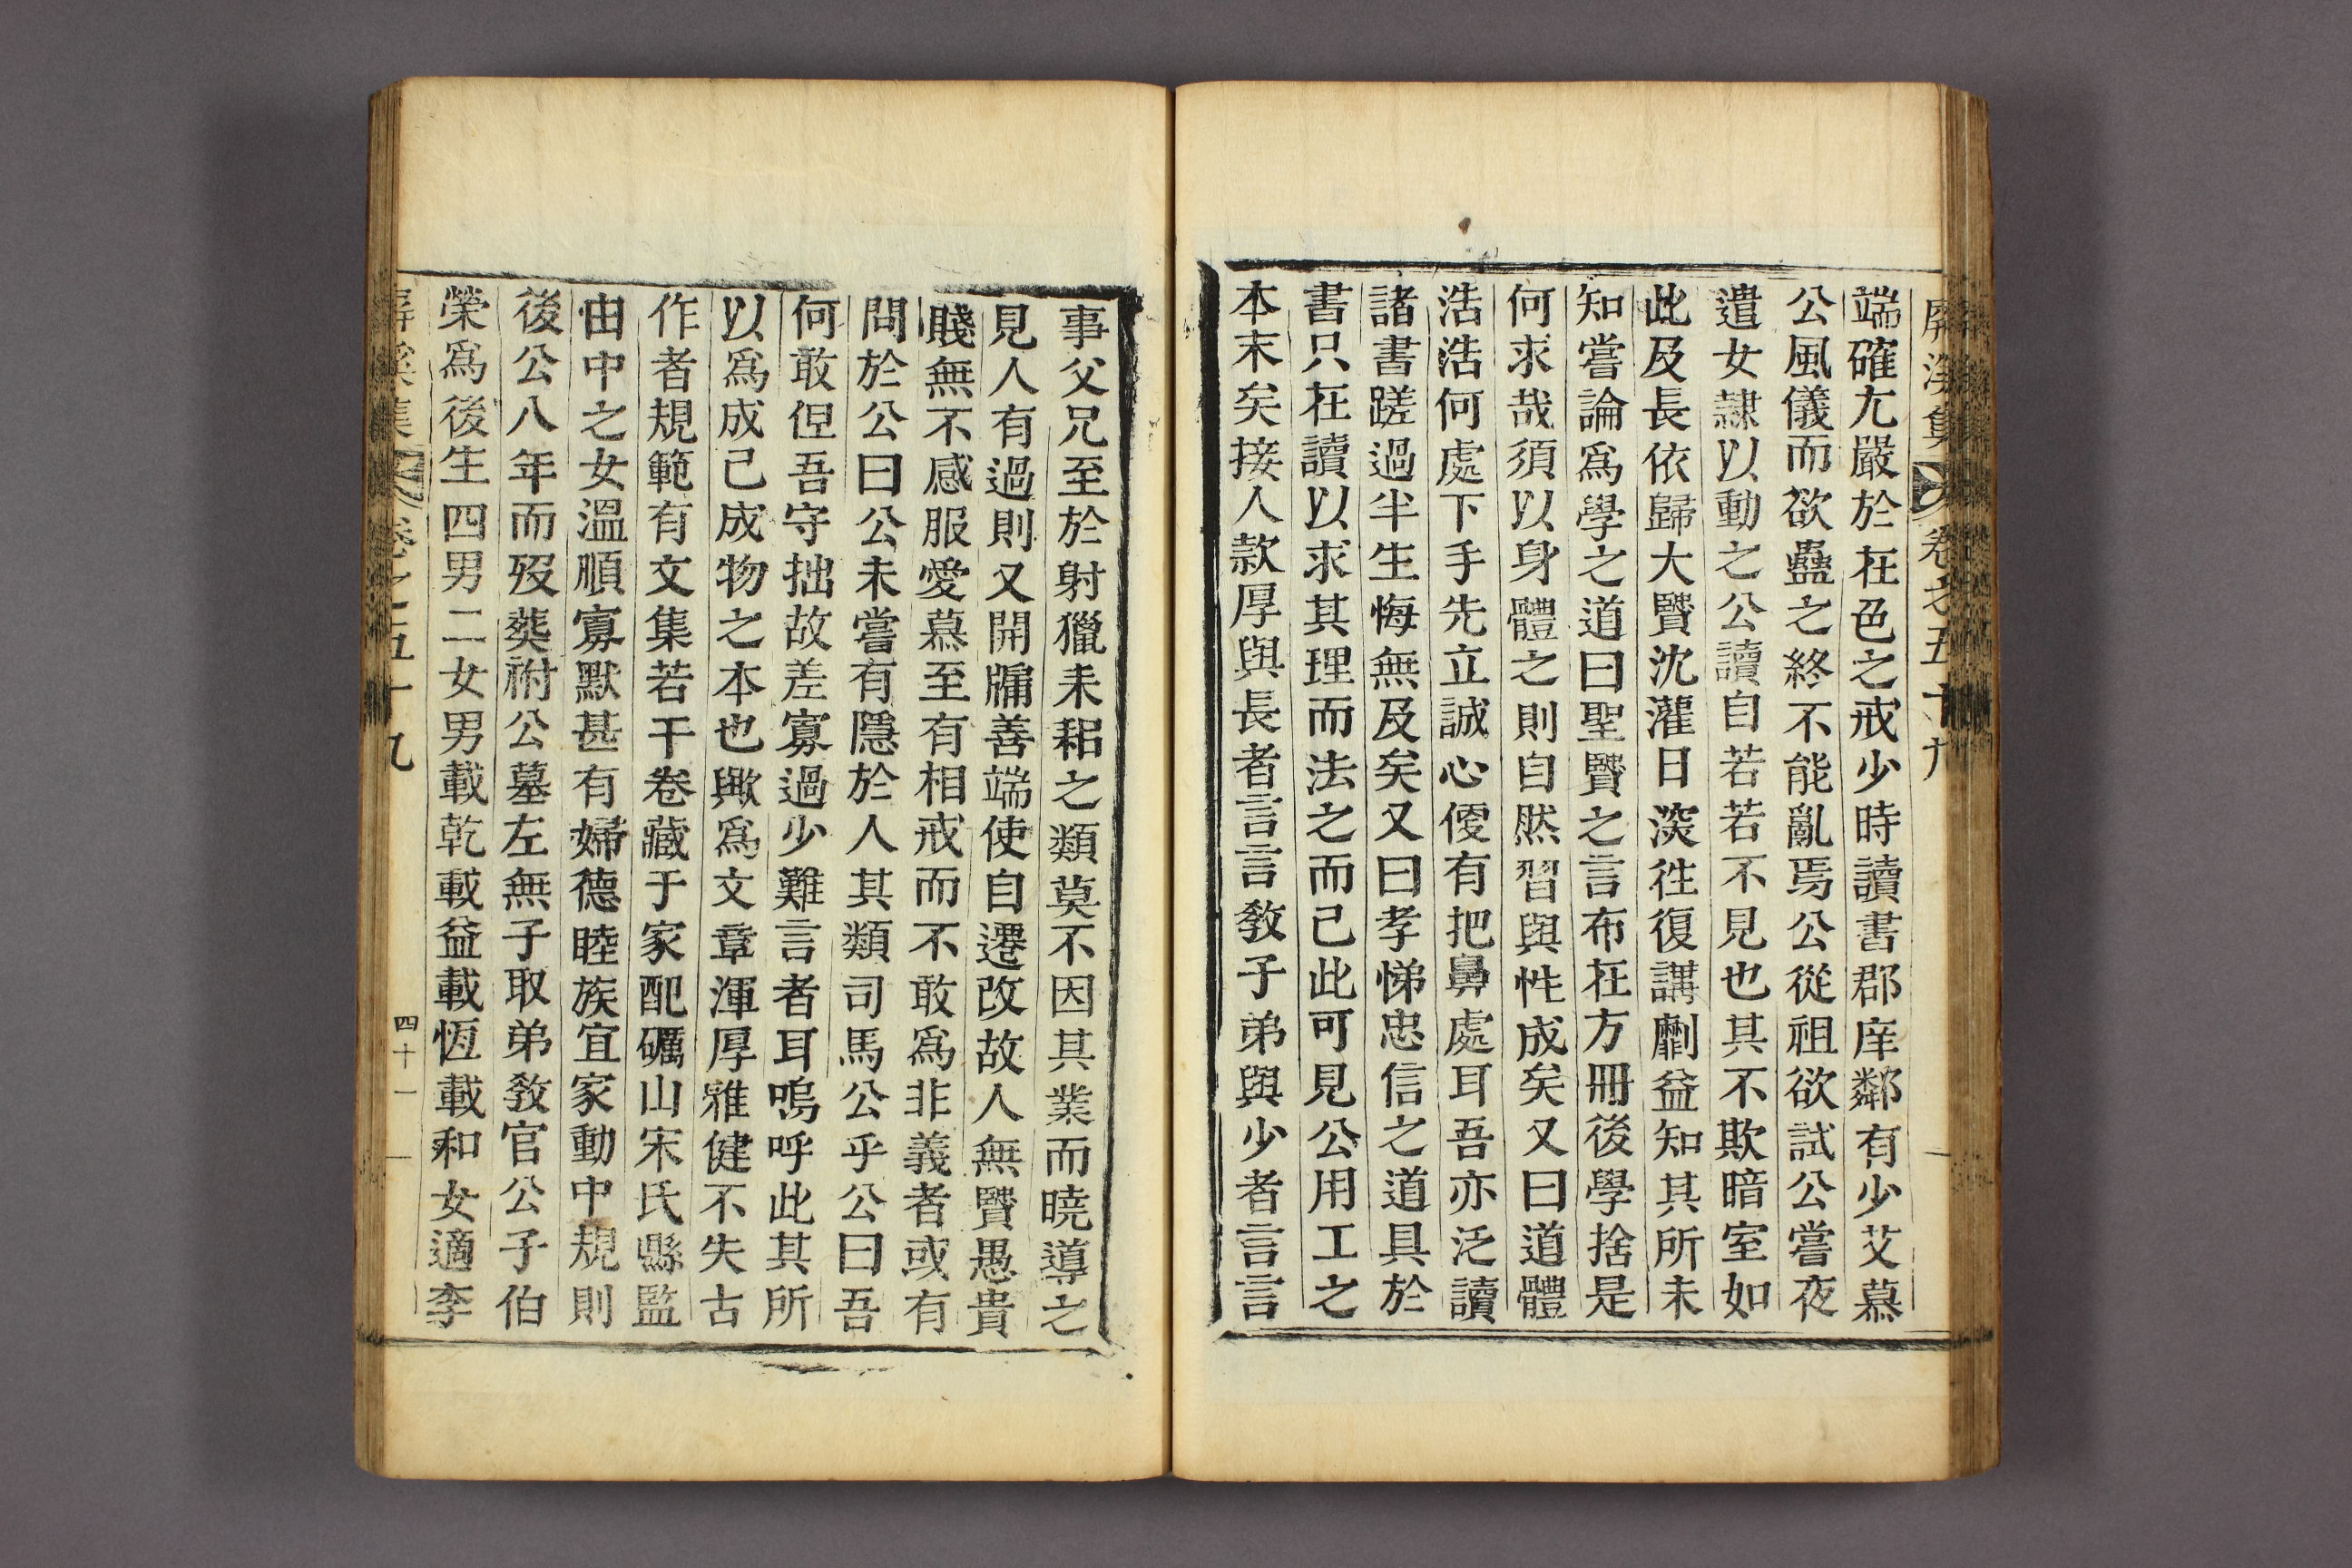 屛溪集 卷之五十九
端確尢嚴於在色之戒少時讀書郡庠鄰有少艾慕
公風儀而欲蠱之終不能亂焉公從祖欲試公嘗夜
遣女隷以動之公讀自若若不見也其不欺暗室如
此及長依歸大賢沈灌日深往復講劘益知其所未
知嘗論爲學之道曰聖賢之言布在方冊後學捨是
何求哉須以身體之則自然習與性成矣又曰道體
浩浩何處下手先立誠心便有把鼻處耳吾亦泛讀
諸書蹉過半生悔無及矣又曰孝悌忠信之道具於
書只在讀以求其理而法之而已此可見公用工之
本末矣接人款厚與長者言言敎子弟與少者言言
事父兄至於射獵耒耜之類莫不因其業而曉導之
見人有過則又開牖善端使自遷改故人無賢愚貴
賤無不感服愛慕至有相戒而不敢爲非義者或有
問於公曰公未嘗有隱於人其類司馬公乎公曰吾
何敢但吾守拙故差寡過少難言者耳嗚呼此其所
以爲成己成物之本也歟爲文章渾厚雅健不失古
作者規範有文集若干卷藏于家配礪山宋氏縣監
由中之女溫順寡默甚有婦德睦族宜家動中規則
後公八年而歿葬祔公墓左無子取弟敎官公子伯
榮爲後生四男二女男載乾載益載恆載和女適李
屛溪集 卷之五十九 四十一